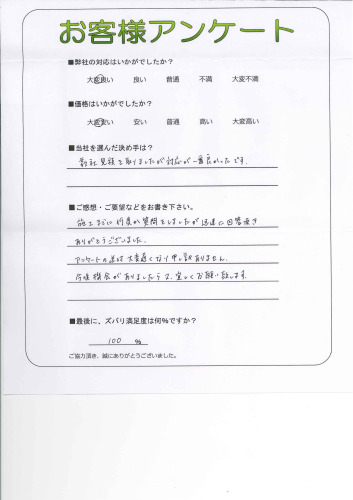 お客様アンケート
■弊社の対応はいかがでしたか？
大変良い 良い 普通 不満 大変不満
■価格はいかがでしたか？
大変安い 安い 普通 高い 大変高い
■当社を選んだ決め手は？
数社見積を取りましたが対応が一番良かったです。
■ご感想・ご要望などをお書き下さい。
施工までに何度か質問をしましたが迅速に回答頂き
ありがとうございました。
アンケートの返送大変遅くなり申し訳ありません。
今後機会がありましたら又、宜しくお願い致します。
■最後に、ズバリ満足度は何%ですか？
100 %
ご協力頂き、誠にありがとうございました。